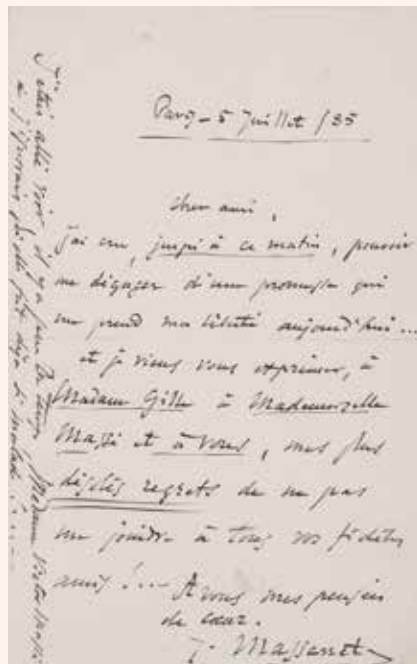 Paris – 5 Juillet /85
cher ami,
j'ai cru, jusqu'à ce matin, pouvoir
me dégager d'une promesse qui
me prend ma liberté aujourd'hui...
et je viens vous exprimer, à
Madame Gille à Mademoiselle
Massé et à vous, mes plus
désolés regrets de ne pas
me joindre à tous vos fidèles
amis !... A vous mes pensées
de cœur.
J. Massenet
J'étais allé voir il y a peu de temps Madame Victor Massé
et j'ignorais qu'elle fût déjà si malade !....